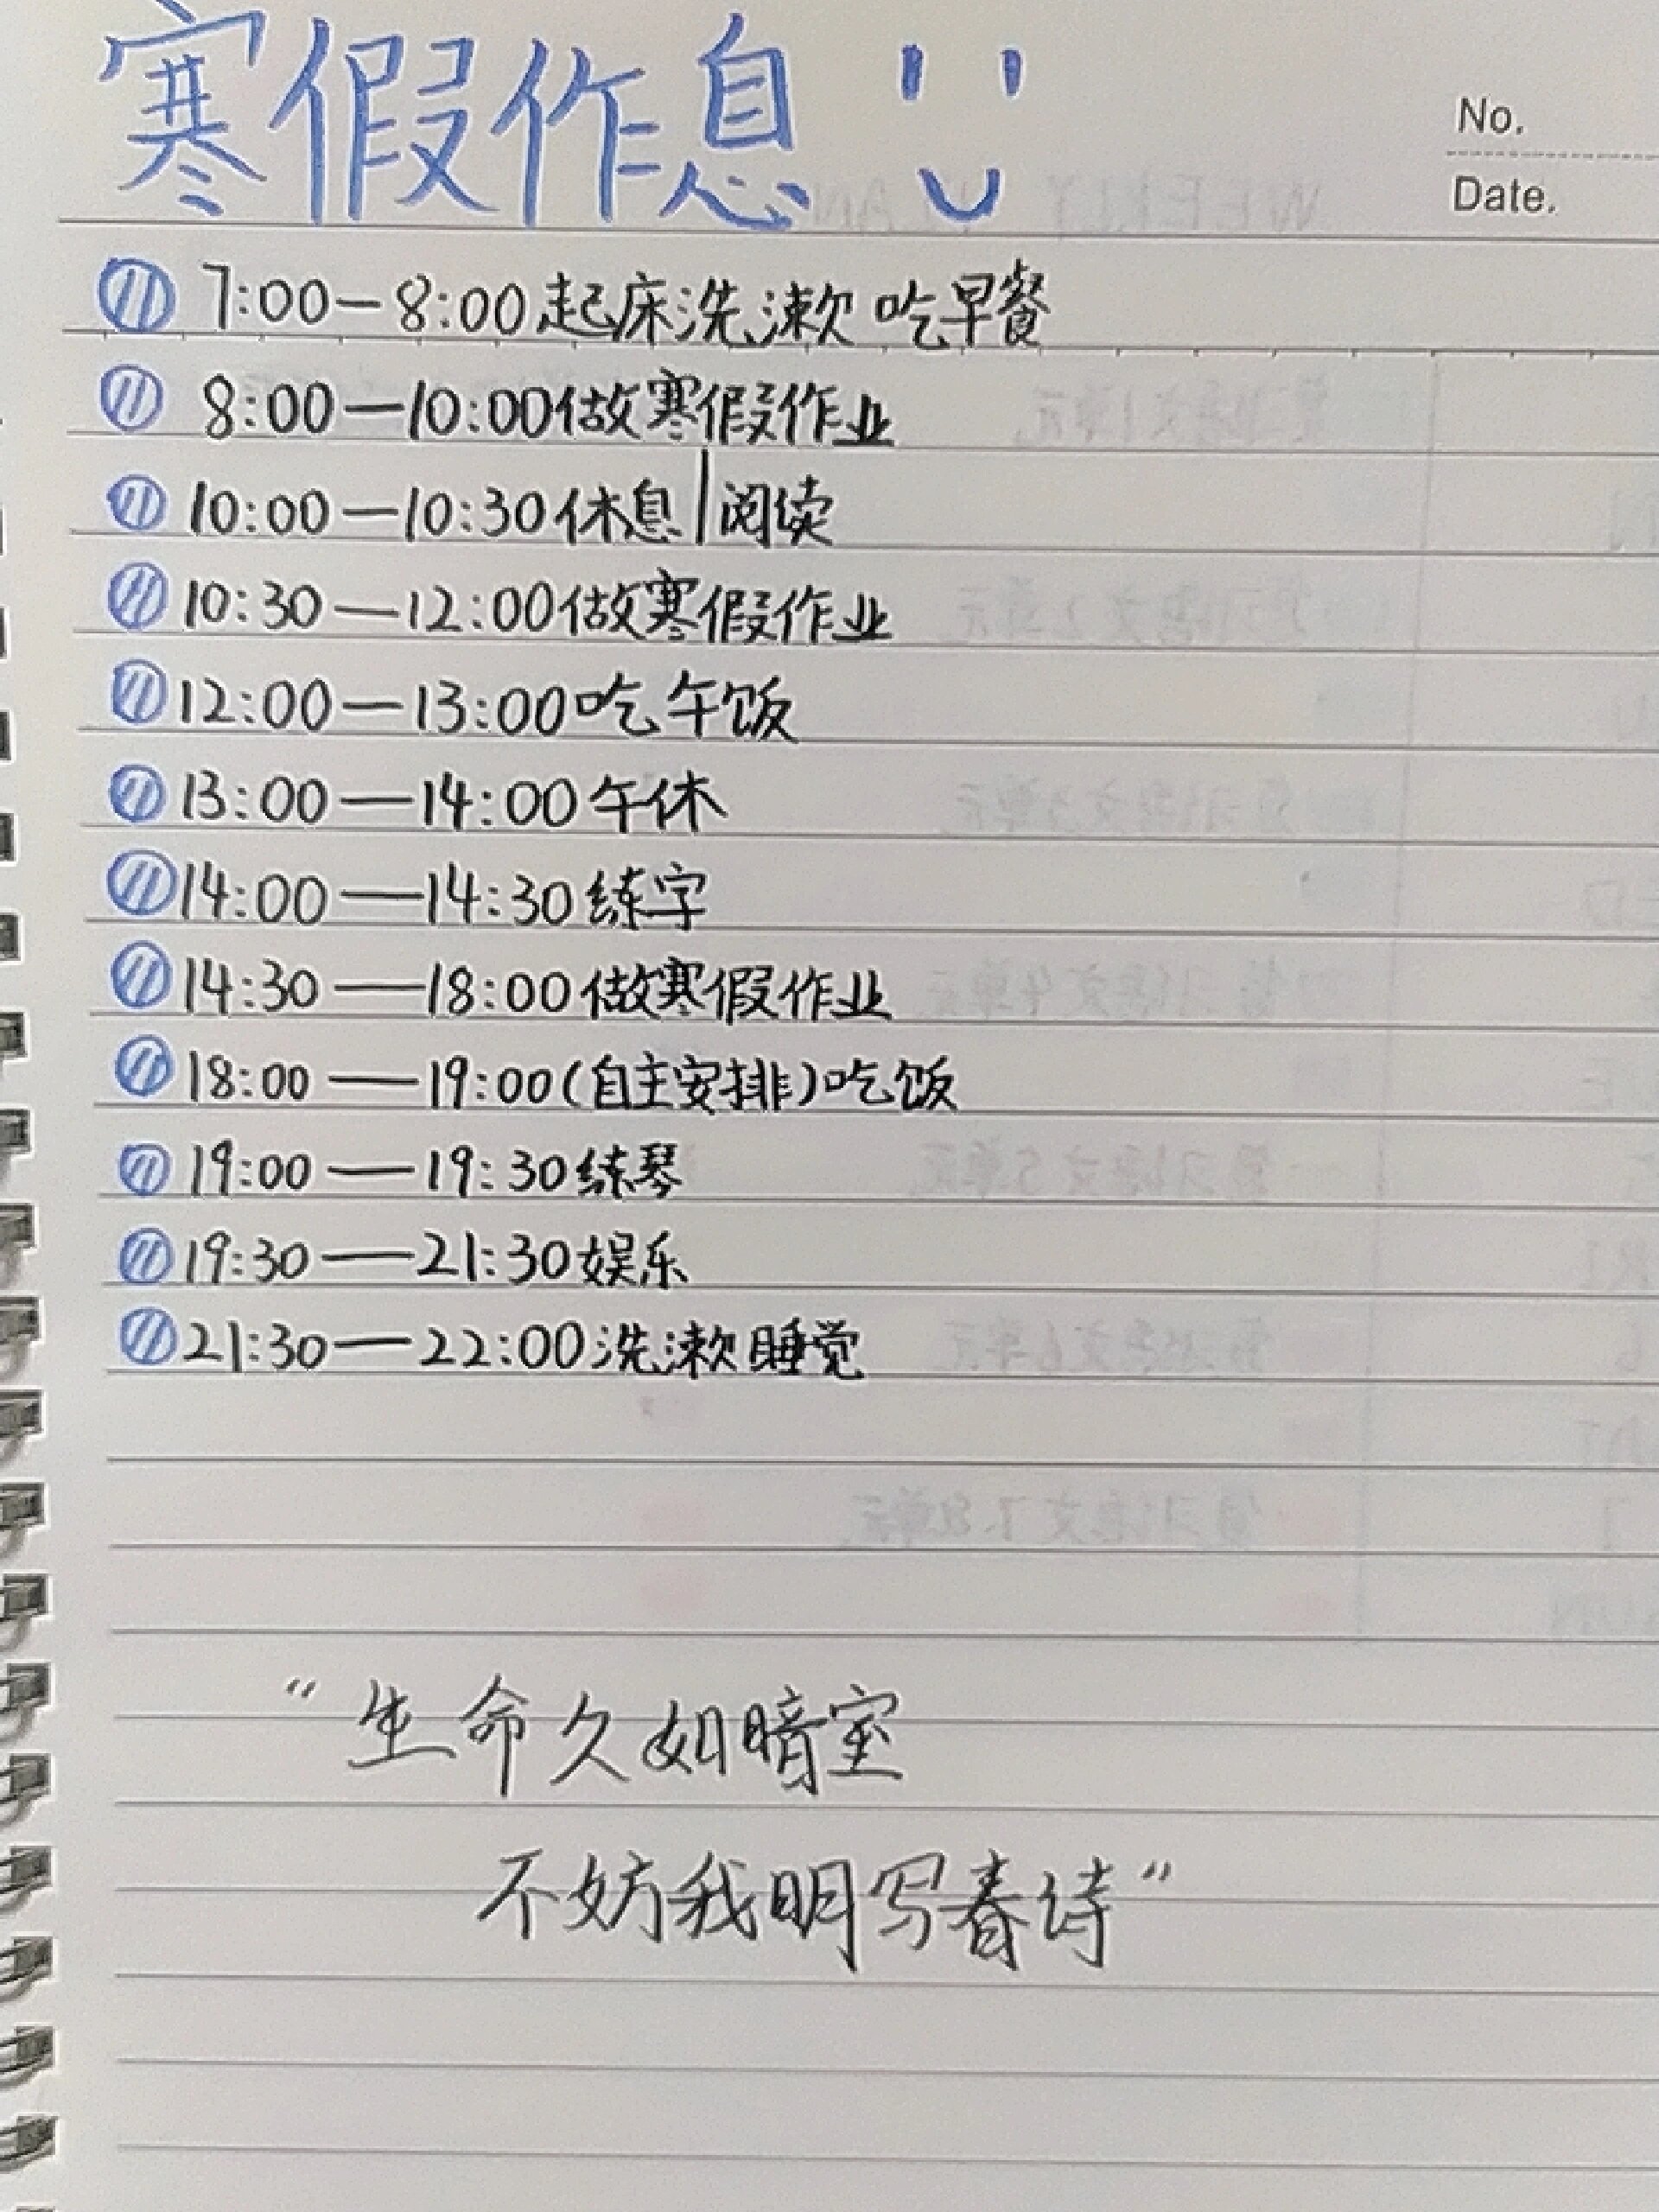 寒假作息
No.
Date.
7:00—8:00起床洗漱 吃早餐
8:00—10:00做寒假作业
10:00—10:30休息|阅读
10:30—12:00做寒假作业
12:00—13:00吃午饭
13:00—14:00午休
14:00—14:30练字
14:30—18:00做寒假作业
18:00—19:00(自主安排)吃饭
19:00—19:30练琴
19:30—21:30娱乐
21:30—22:00洗漱睡觉
“生命久如暗室
不妨我明写春诗”